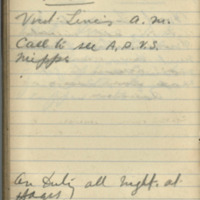 Visit Lines A.M.
Call to see A.D.V.S.
Nieppe
On Duty all night at